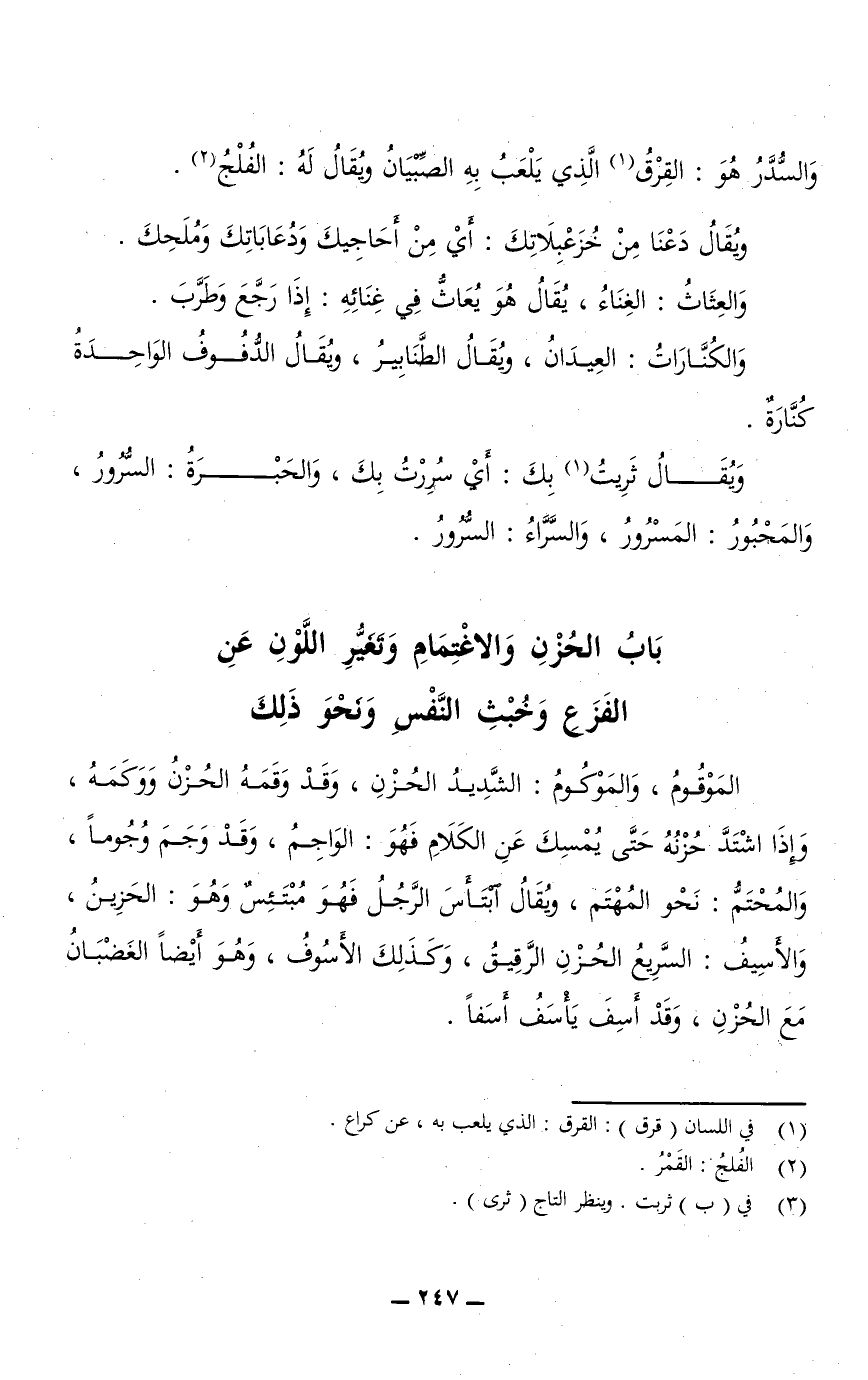 وَالسُّدَّرُ هُوَ : القِرْقُ(١) الَّذِي يَلْعَبُ بِهِ الصِّبْيَانُ ويُقَالُ لَهُ : الفُلْجُ(٢) .
ويُقَالُ دَعْنَا مِنْ خُزَعْبِلَاتِكَ : أَيْ مِنْ أَحَاجِيكَ وَدُعَابَاتِكَ وَمُلَحِكَ .
وَالعِثَاثُ : الغِنَاءُ ، يُقَالُ هُوَ يُعَاثُّ فِي غِنَائِهِ : إِذَا رَجَّعَ وَطَرَّبَ .
وَالكُنَّارَاتُ : العِيدَانُ ، ويُقَالُ الطَّنَابِيرُ ، ويُقَالُ الدُّفُوفُ الوَاحِدَةُ
كُنَّارَةٌ .
وَيُقَالُ ثَرِيتُ(١) بِكَ : أَيْ سُرِرْتُ بِكَ ، وَالحَبْرَةُ : السُّرُورُ ،
وَالمَحْبُورُ : المَسْرُورُ ، وَالسَّرَّاءُ : السُّرُورُ .
بَابُ الحُزْنِ وَالاغْتِمَامِ وَتَغَيُّرِ اللَّوْنِ عَنِ
الفَزَعِ وَخُبْثِ النَّفْسِ وَنَحْوَ ذَلِكَ
المَوْقُومُ ، وَالمَوْكُومُ : الشَّدِيدُ الحُزْنِ ، وَقَدْ وَقَمَهُ الحُزْنُ وَوَكَمَهُ ،
وَإِذَا اشْتَدَّ حُزْنُهُ حَتَّى يُمْسِكَ عَنِ الكَلَامِ فَهُوَ : الوَاجِمُ ، وَقَدْ وَجَمَ وُجُوماً ،
وَالمُحْتَمُّ : نَحْو المُهْتَم ، ويُقَالُ ٱبْتَأَسَ الرَّجُلُ فَهُوَ مُبْتَئِسٌ وَهُوَ : الحَزِينُ ،
وَالأَسِيفُ : السَّرِيعُ الحُزْنِ الرَّقِيقُ ، وَكَذَلِكَ الأَسُوفُ ، وَهُوَ أَيْضاً الغَضْبَانُ
مَعَ الحُزْنِ ، وَقَدْ أَسِفَ يَأْسَفُ أَسَفاً .
(١) في اللسان ( قرق ) : القرق : الذي يلعب به ، عن كراع .
(٢) الفُلجُ : القَمْرُ .
(٣) في ( ب ) ثربت . وينظر التاج ( ثرى ) .
ــ ٢٤٧ ــ